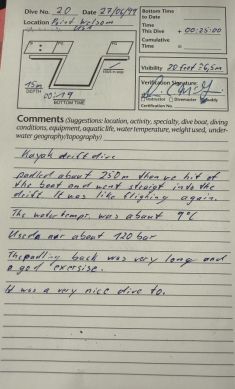 Dive No. 20 Date 27/06/99
Location Point Welsom
Bottom Time to Date
Time This Dive + 00:25:00
Cumulative Time =
15m
DEPTH
00:19
BOTTOM TIME
Visibility 20 feet = 6,5m
Verification Signature
Instructor Divemaster Buddy
Certification No.
Comments (Suggestions: location, activity, specialty, dive boat, diving
conditions, equipment, aquatic life, water temperature, weight used, under-
water geography/topography)
Kayak drift dive
padled about 250m than we hit of
the boat and went straigt into the
drift. It was like flighing again.
The water tempr. was about 9°C
Used air about 120 bar
The padling back was very long and
a god exersise.
It was a very nice dive to.